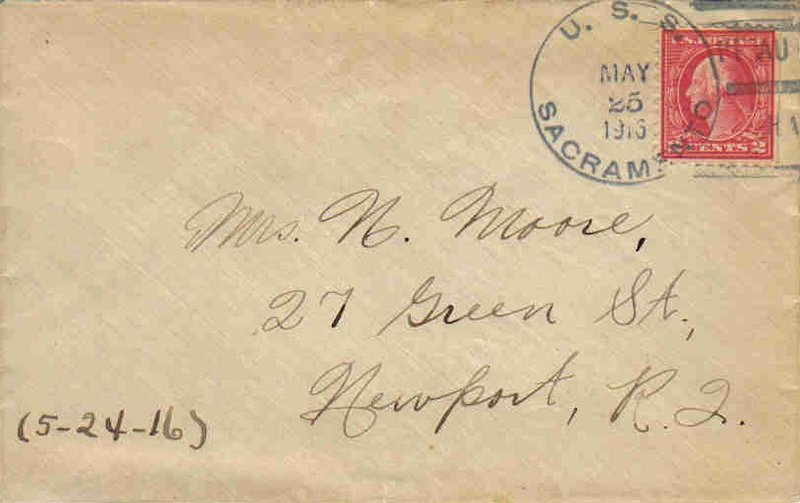 U. S. S.
MAY
25
1916
SACRAMENTO
CENTS 2
Mrs. N. Moore,
27 Green St.,
Newport, R.I.
(5-24-16)